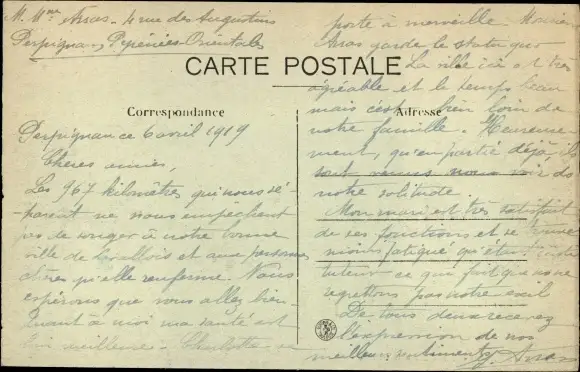 M. Mme Arras - 4 rue des Augustins
Perpignan, Pyrénées-Orientales
CARTE POSTALE
Correspondance
Perpignan ce 6 avril 1919
Chères amies,
Les 967 kilomètres qui nous sé-
parent ne nous empêchent
pas de songer à notre bonne
ville de Levallois et aux personnes
chères qu'elle renferme. Nous
espérons que vous allez bien
quant à moi ma santé est
meilleure - Charlotte se
porte à merveille - Monsieur
Arras garde le statu quo
La ville ici est très
agréable et le temps beau
mais c'est bien loin de
notre famille. Heureuse-
ment, qu'en partie déjà, ils
sont venus nous voir ds
notre solitude.
Adresse
Mon mari est très satisfait
de ses fonctions et se trouve
moins fatigué qu'
ce que fait que nous ne
regrettons pas notre exil
De tous deux recevez
l'expression de nos
meilleurs sentiments